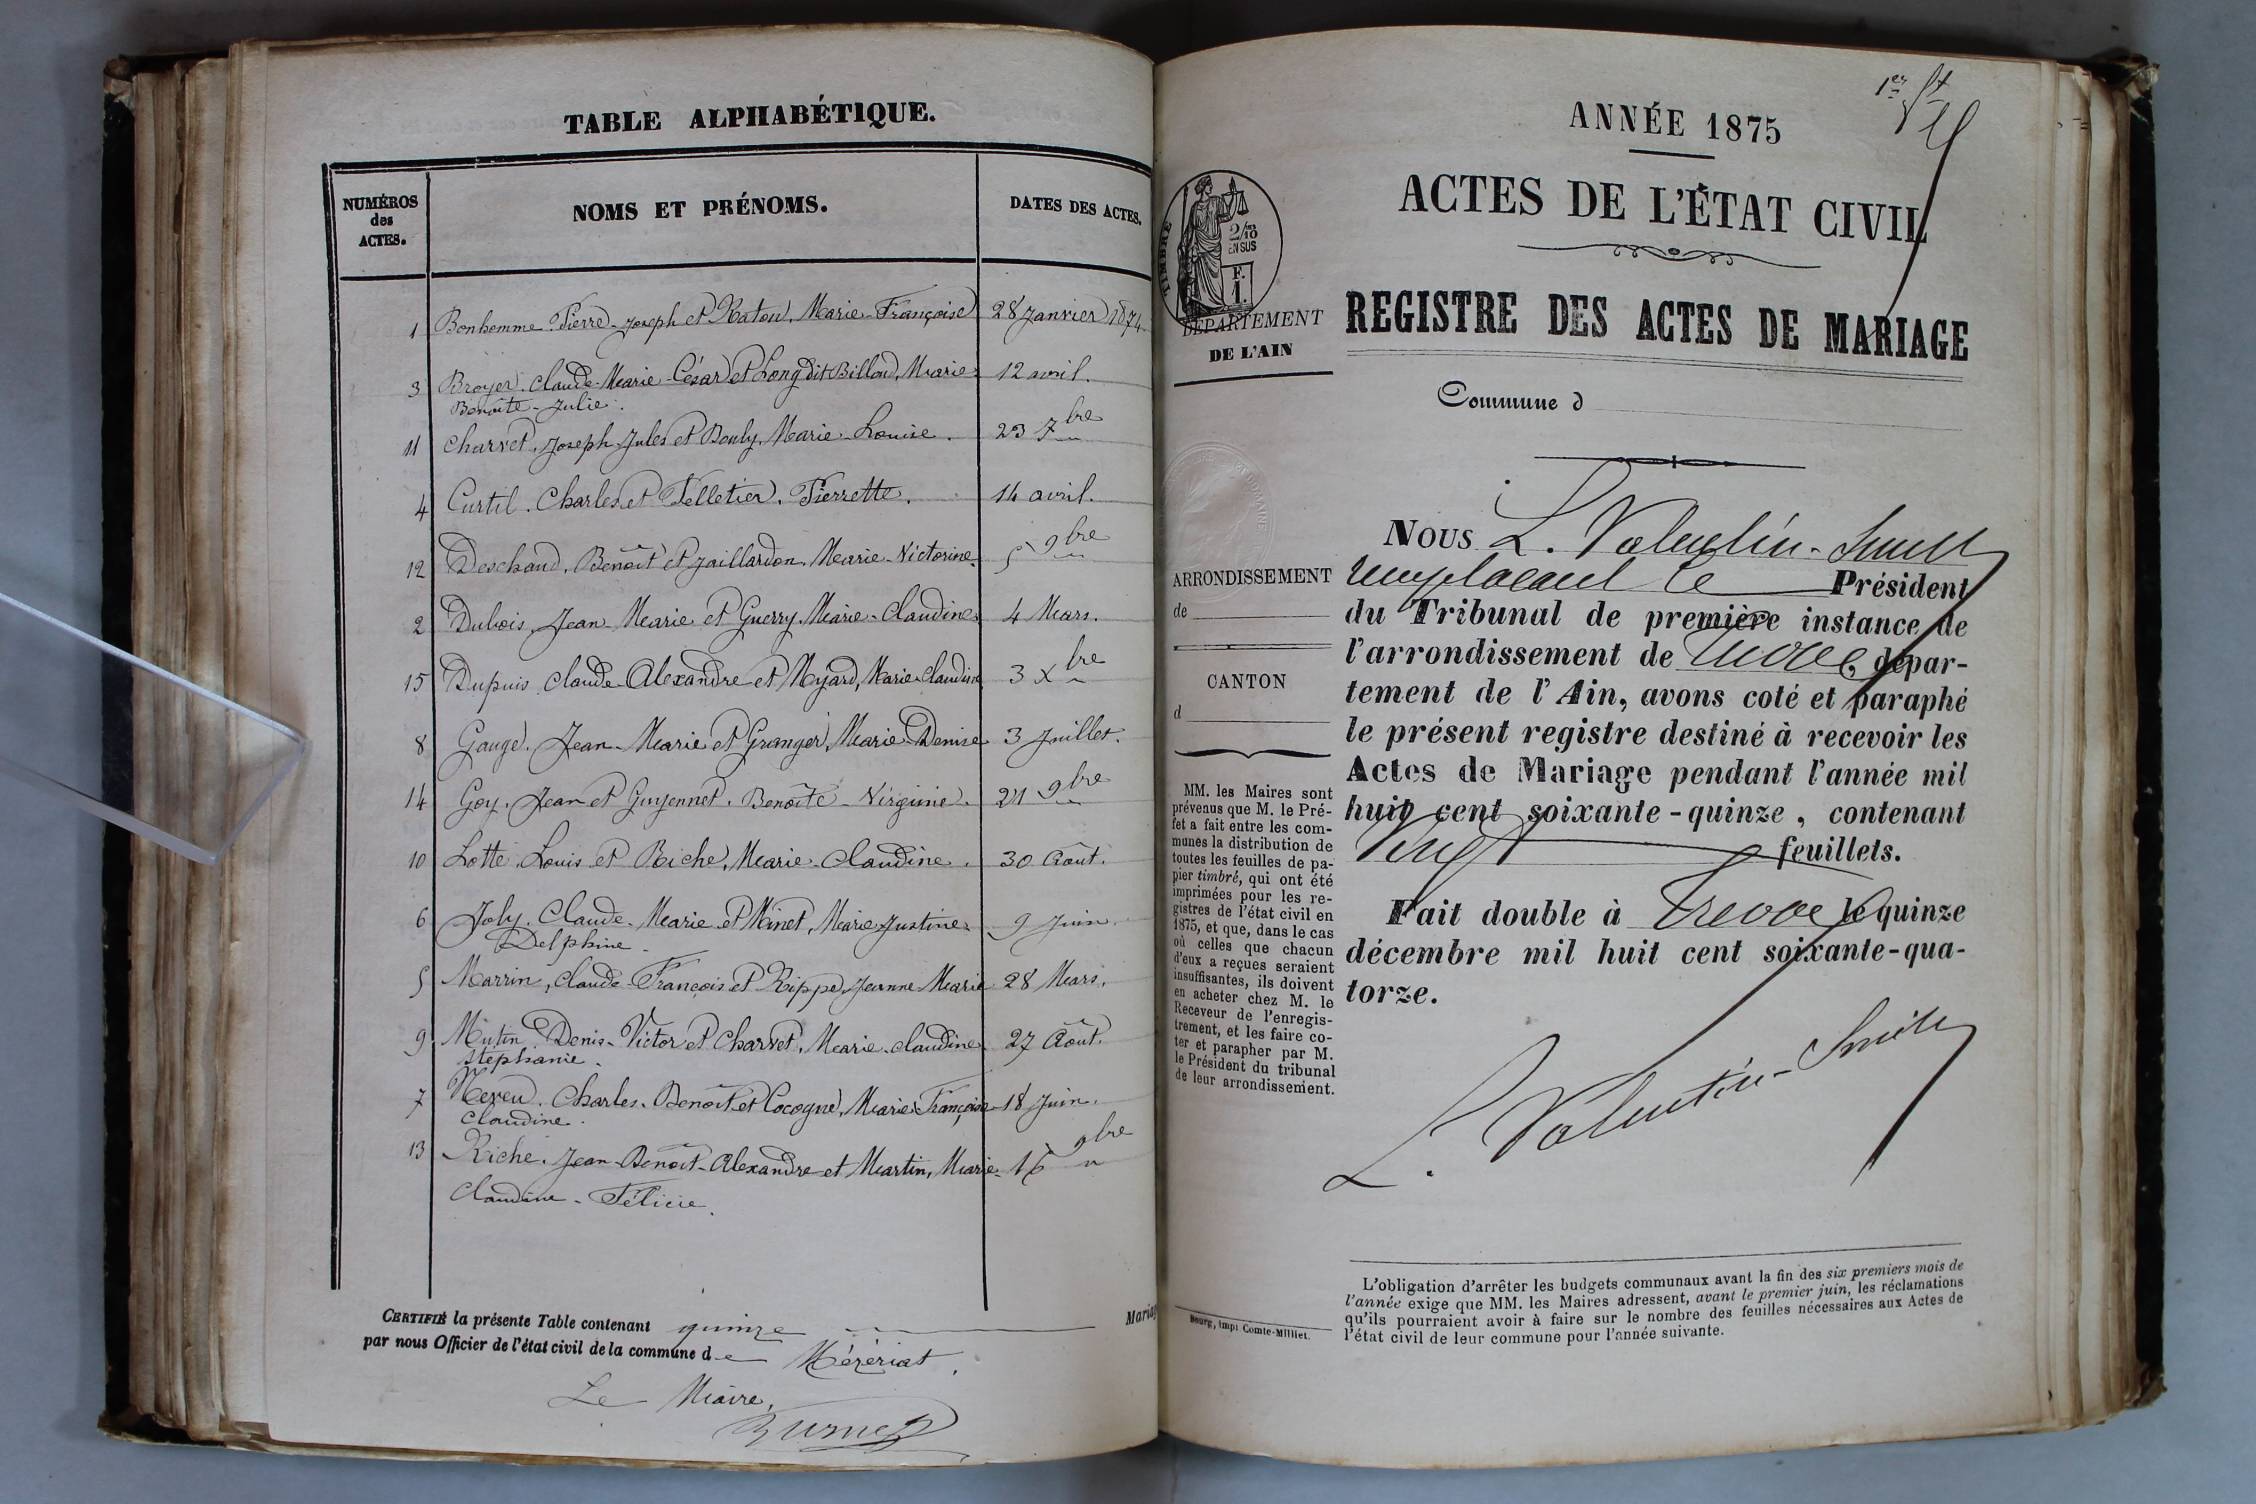 TABLE ALPHABÉTIQUE.
NUMÉROS
des
ACTES.
NOMS ET PRÉNOMS.
DATES DES ACTES.
1 Bonhomme Pierre-Joseph et Raton, Marie-Françoise 28 Janvier 1874
3 Broyer. Claude-Marie-César et Long dit Billoud, Marie- 12 avril.
Benoîte-Julie.
11 Charvet, Joseph-Jules et Bouly, Marie-Louise. 23 7bre
4 Curtil. Charles et Pelletier. Pierrette. 14 avril.
12 Deschaud, Benoît et Jaillardon, Marie-Victorine. 5 9bre
2 Dubois, Jean-Marie et Guerry, Marie-Claudine. 4 Mars.
15 Dupuis, Claude-Alexandre et Myard, Marie-Claudine 3 Xbre
8 Gauge. Jean-Marie et Granger, Marie-Denise 3 Juillet.
14 Goy. Jean et Guyennet. Benoîte-Virginie. 21 9bre
10 Lotte Louis et Riche, Marie-Claudine. 30 Août.
6 Joly. Claude-Marie et Minet, Marie Justine- 9 Juin.
Delphine.
5 Marrin, Claude-François et Rippe, Jeanne Marie 28 Mars.
9 Mutin Denis-Victor et Charvet, Marie-Claudine- 27 Août.
Stephanie.
7 Neveu. Charles-Benoît et Cocogne, Marie Françoise 18 Juin.
Claudine.
13 Riche. Jean-Benoît-Alexandre et Martin, Marie- 16 9bre
Claudine-Félicie.
CERTIFIÉ la présente Table contenant quinze Mariag
par nous Officier de l'état civil de la commune de Mézériat.
Le Maire,
1er
ANNÉE 1875
ACTES DE L'ÉTAT CIVIL
TIMBRE
2/10
EN SUS
F.
1.
DÉPARTEMENT
DE L'AIN
REGISTRE DES ACTES DE MARIAGE
Commune d
ARRONDISSEMENT
de
CANTON
d
MM. les Maires sont
prévenus que M. le Pré-
fet a fait entre les com-
munes la distribution de
toutes les feuilles de pa-
pier timbré, qui ont été
imprimées pour les re-
gistres de l'état civil en
1875, et que, dans le cas
où celles que chacun
d'eux a reçues seraient
insuffisantes, ils doivent
en acheter chez M. le
Receveur de l'enregis-
trement, et les faire co-
ter et parapher par M.
le Président du tribunal
de leur arrondissement.
Bourg, imp. Comte-Milliet.
NOUS L. Valentin-Smith
remplaçant le Président
du Tribunal de première instance de
l'arrondissement de Trévoux, dépar-
tement de l'Ain, avons coté et paraphé
le présent registre destiné à recevoir les
Actes de Mariage pendant l'année mil
huit cent soixante-quinze, contenant
Vingt feuillets.
Fait double à Trévoux le quinze
décembre mil huit cent soixante-qua-
torze.
L. Valentin-Smith
L'obligation d'arrêter les budgets communaux avant la fin des six premiers mois de
l'année exige que MM. les Maires adressent, avant le premier juin, les réclamations
qu'ils pourraient avoir à faire sur le nombre des feuilles nécessaires aux Actes de
l'état civil de leur commune pour l'année suivante.